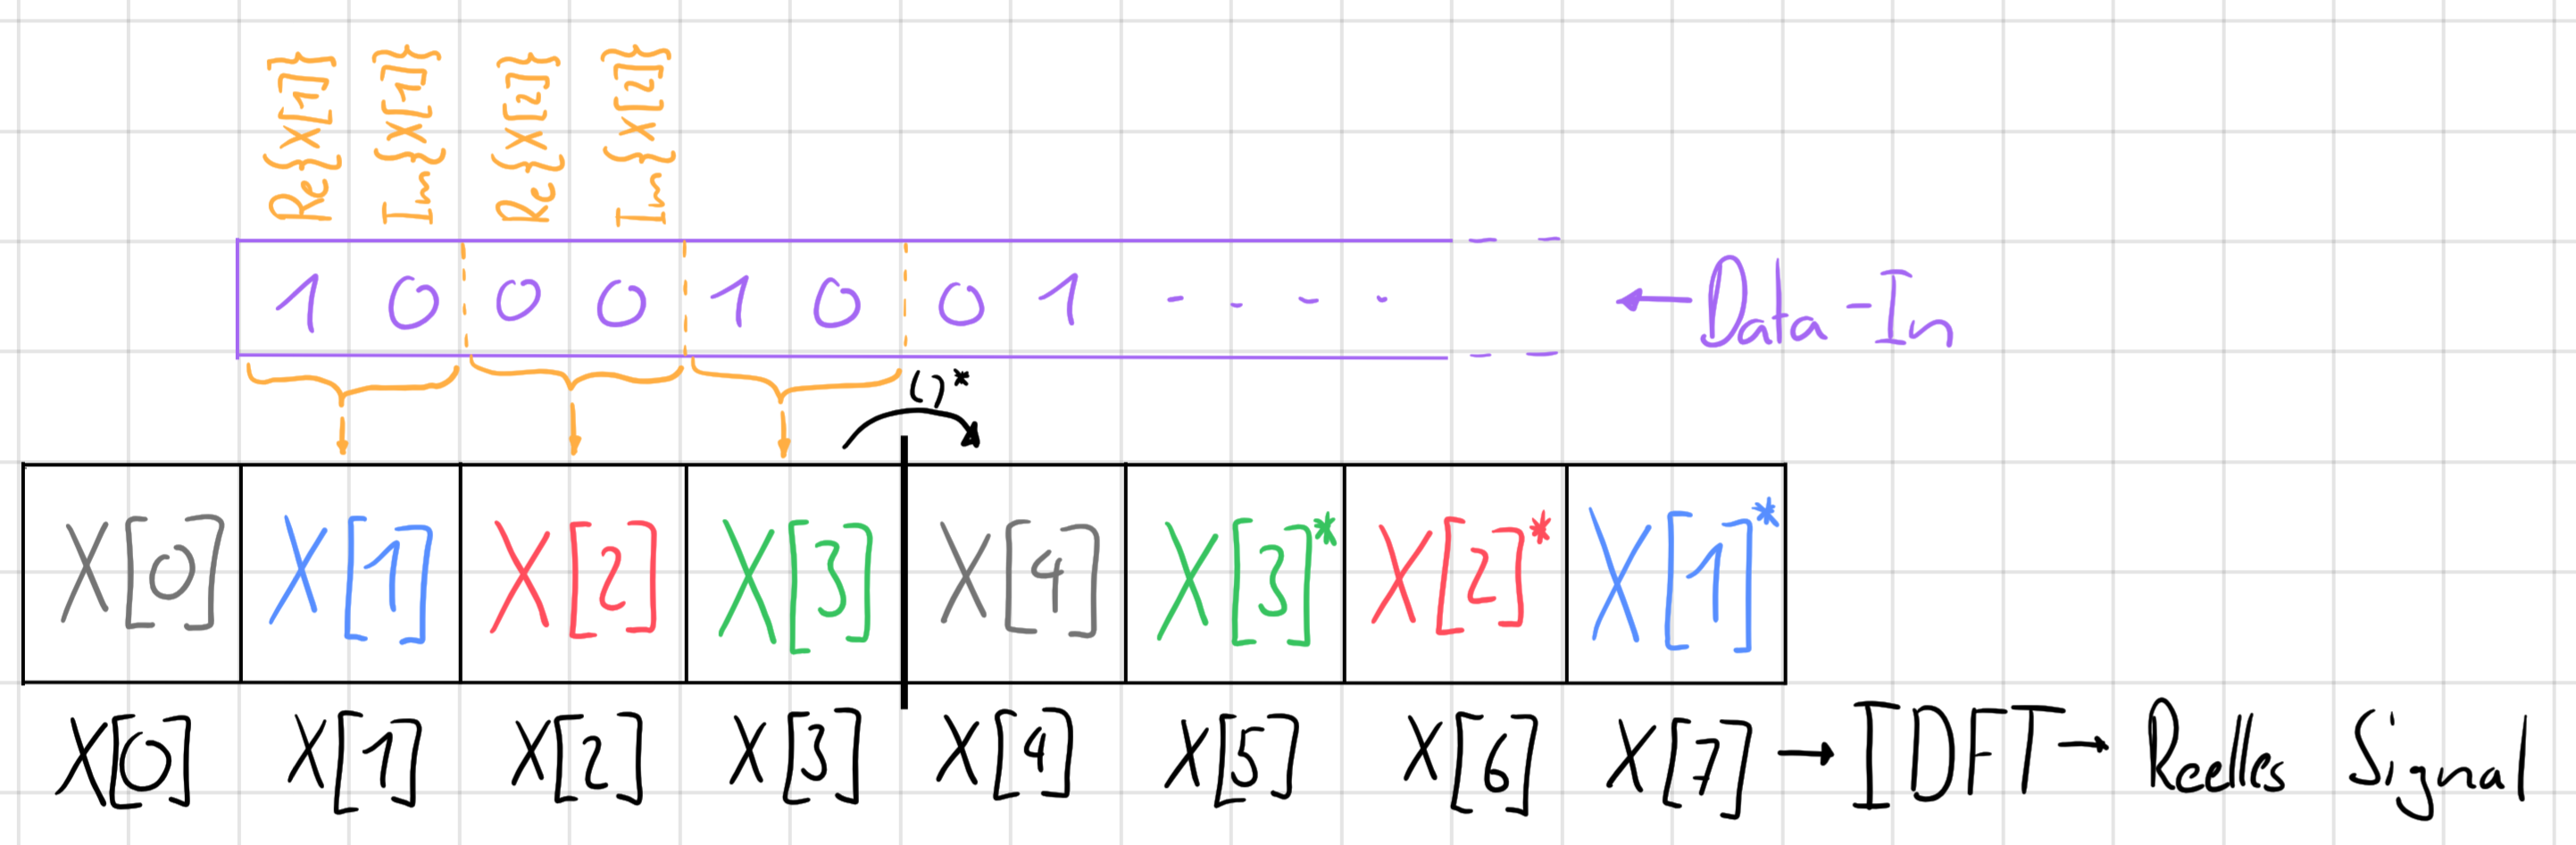 Re{X[1]} Im{X[1]} Re{X[2]} Im{X[2]}
1 0 0 0 1 0 0 1 - - - - ← Data-In
()*
X[0] X[1] X[2] X[3] X[4] X[3]* X[2]* X[1]*
X[0] X[1] X[2] X[3] X[4] X[5] X[6] X[7] → IDFT → Reelles Signal